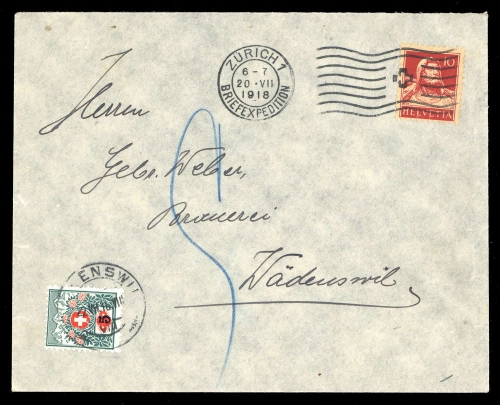 ZÜRICH 1
6-7
20·VII
1918
BRIEFEXPEDITION
10
HELVETIA
Herren
Gebr. Weber,
Brauerei
Wädenswil.
5
ENSWIL
5